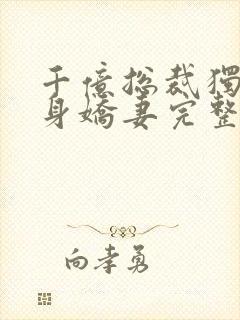 千億總裁獨
身嬌妻完整
向孝勇